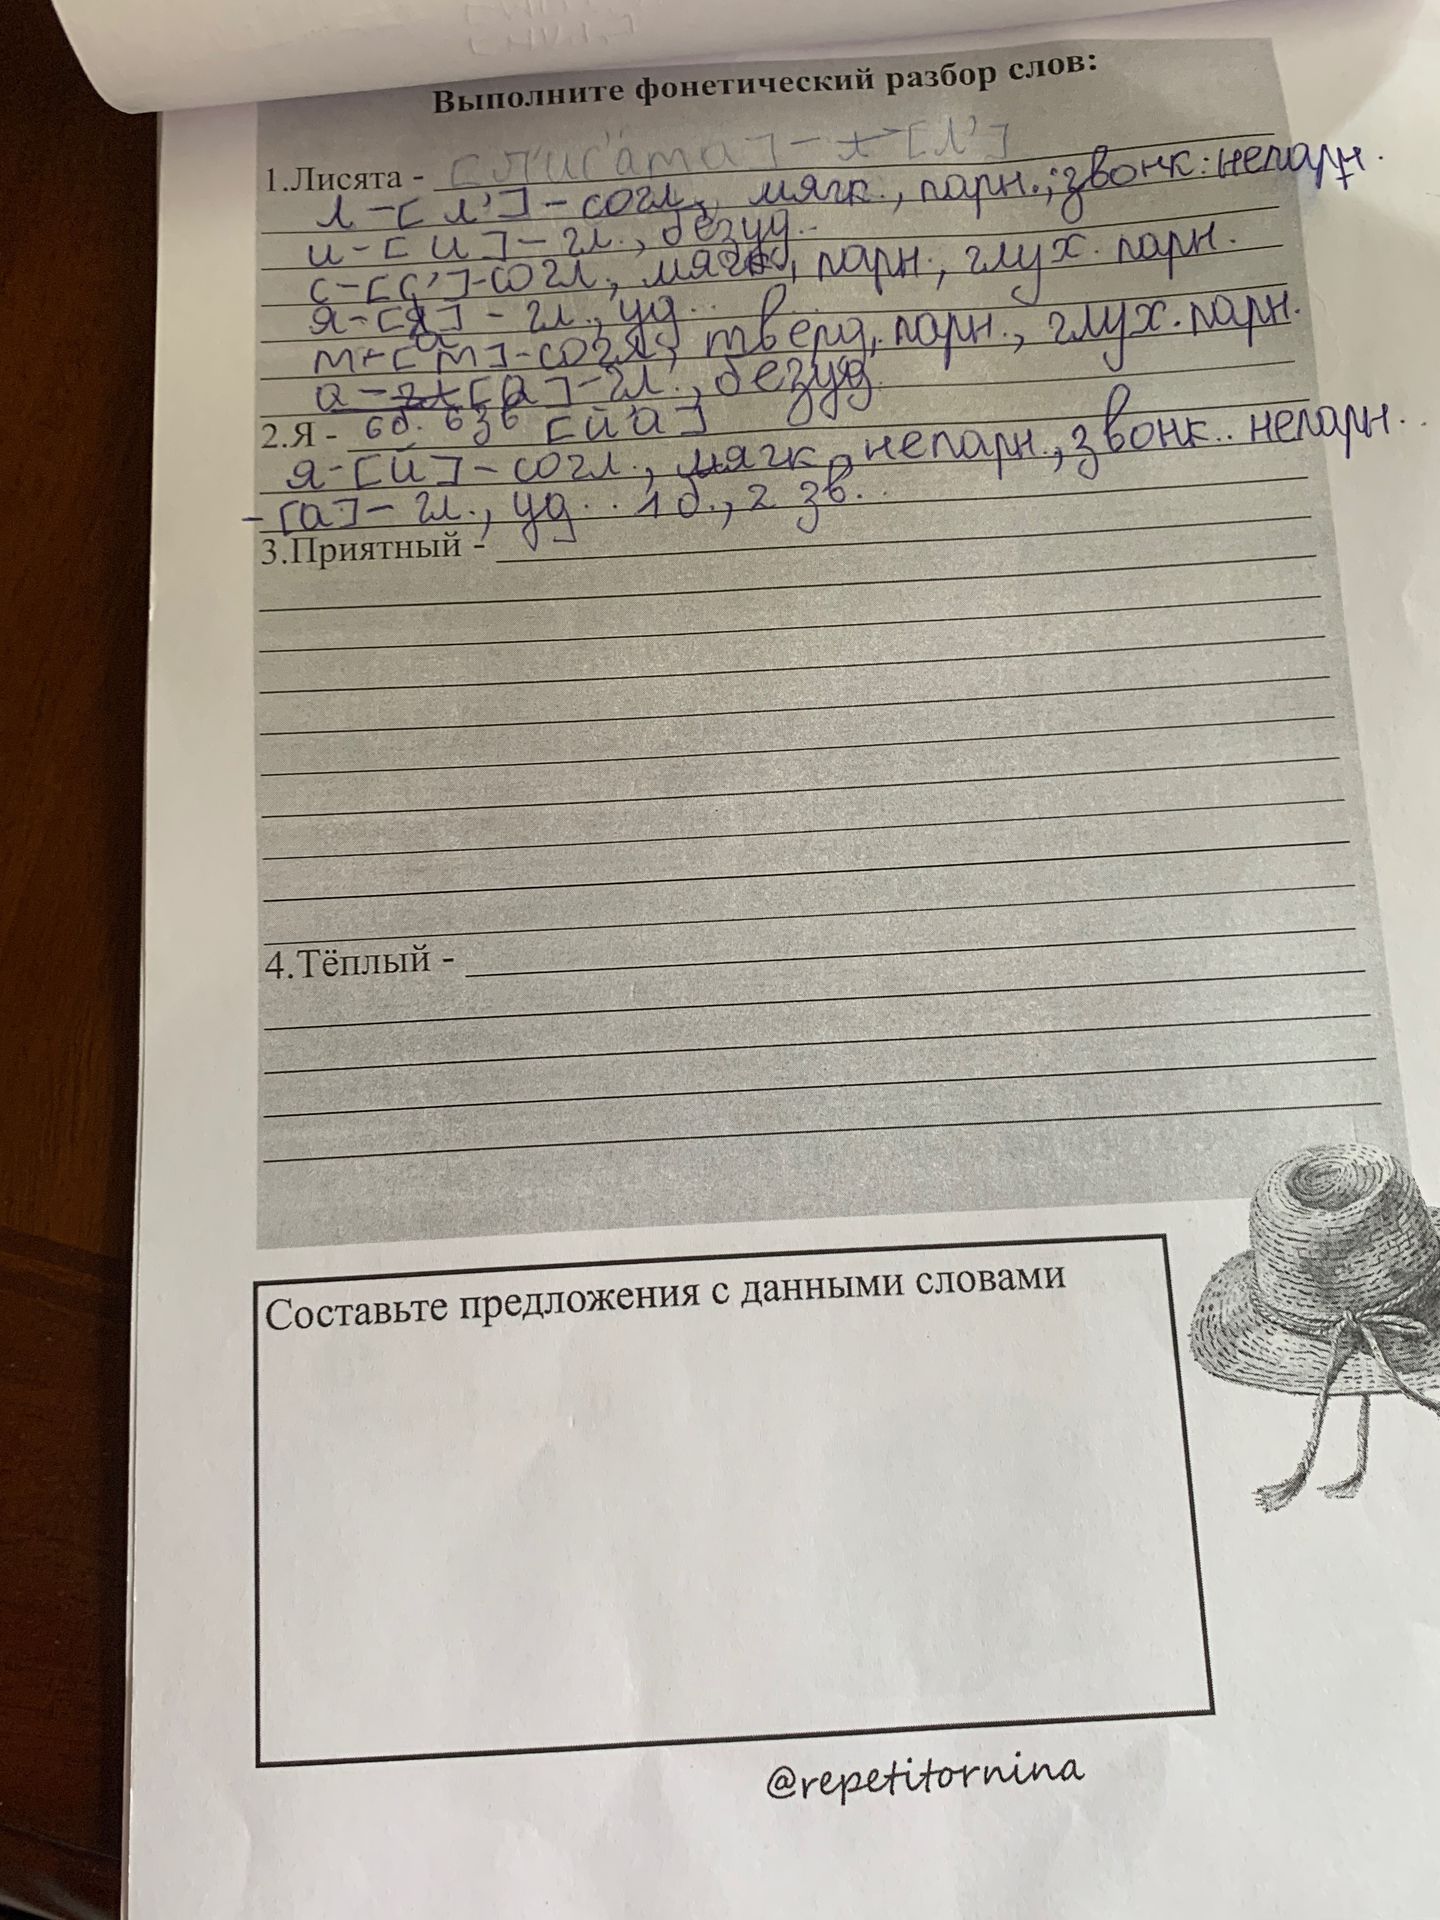 Выполните фонетический разбор слов:
1.Лисята - [л'ис'ата] - [л']
л - [л'] - согл., мягк., парн., звонк. непарн.
и - [и] - гл., безуд.
с - [с'] - согл., мягк., парн., глух. парн.
я - [а] - гл., уд.
т - [т] - согл., тверд., парн., глух. парн.
а - [а] - гл., безуд.
6б. 6зв
2.Я - [й'а]
я - [й] - согл., мягк., непарн., звонк.. непарн..
- [а] - гл., уд.. 1 б., 2 зв..
3.Приятный -
4.Тёплый -
Составьте предложения с данными словами
@repetitornina